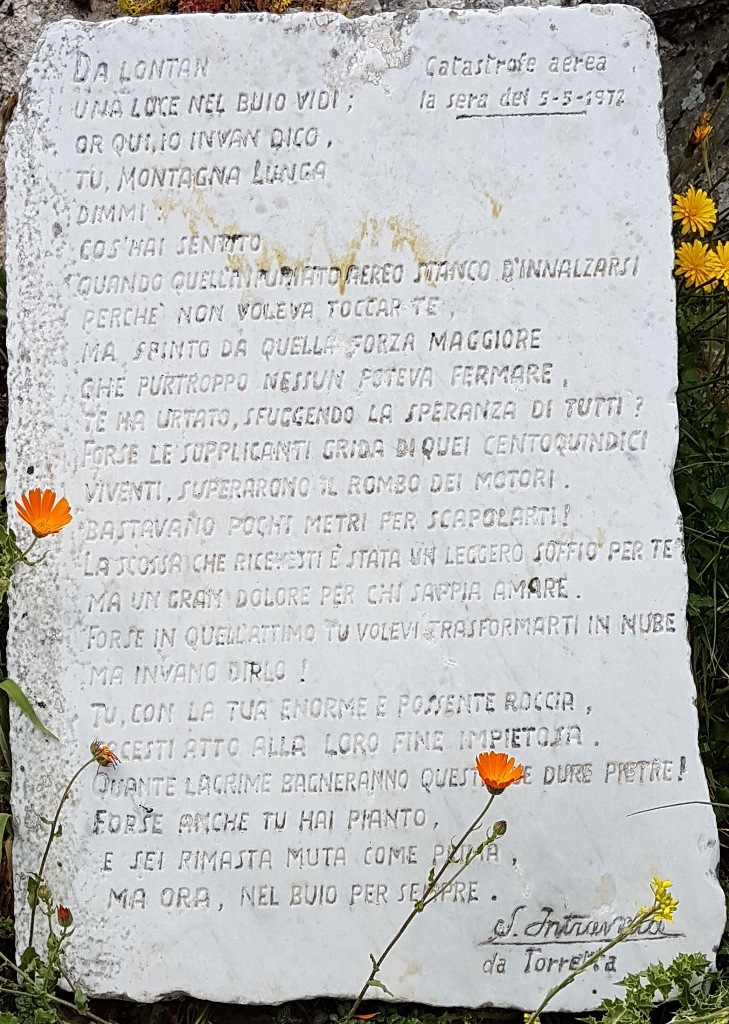 DA LONTAN
Catastrofe aerea
UNA LUCE NEL BUIO VIDI;
la sera del 5-5-1972
OR QUI, IO INVAN DICO,
TU, MONTAGNA LUNGA
DIMMI:
COS'HAI SENTITO
QUANDO QUELL'INFURIATO AEREO STANCO D'INNALZARSI
PERCHE' NON VOLEVA TOCCAR TE,
MA SPINTO DA QUELLA FORZA MAGGIORE
CHE PURTROPPO NESSUN POTEVA FERMARE,
TE HA URTATO, SFUGGENDO LA SPERANZA DI TUTTI?
FORSE LE SUPPLICANTI GRIDA DI QUEI CENTOQUINDICI
VIVENTI, SUPERARONO IL ROMBO DEI MOTORI.
BASTAVANO POCHI METRI PER SCAPOLARTI!
LA SCOSSA CHE RICEVESTI È STATA UN LEGGERO SOFFIO PER TE
MA UN GRAN DOLORE PER CHI SAPPIA AMARE.
FORSE IN QUELL'ATTIMO TU VOLEVI TRASFORMARTI IN NUBE
MA INVANO DIRLO!
TU, CON LA TUA ENORME E POSSENTE ROCCIA,
FACESTI ATTO ALLA LORO FINE IMPIETOSA.
QUANTE LACRIME BAGNERANNO QUESTE DURE PIETRE!
FORSE ANCHE TU HAI PIANTO,
E SEI RIMASTA MUTA COME PRIMA,
MA ORA, NEL BUIO PER SEMPRE.
S.
da Torretta